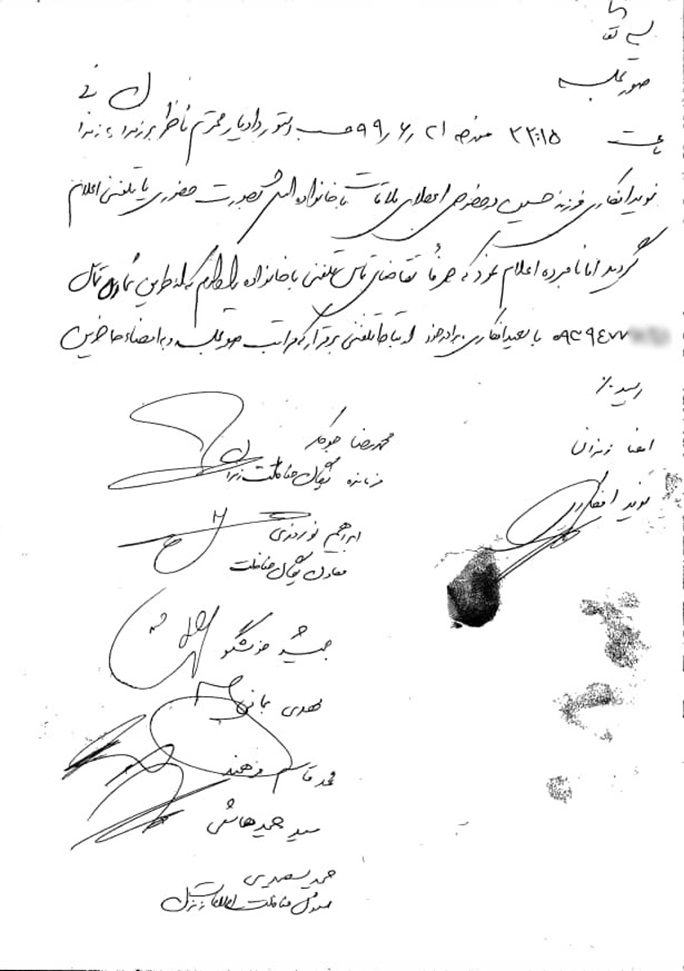 بسمه تعالی
صورتجلسه
ساعت ۲۲:۱۵ مورخه ۹۹/۶/۲۱ حسب دستور دادیار محترم ناظر بر زندان زندانی
نوید افکاری فرزند حسین در خصوص اعطای ملاقات با خانواده اش بصورت حضوری یا تلفنی اعلام
گردید اما نامبرده اعلام نمود که صرفاً تقاضای تماس تلفنی با خانواده را دارم که از طریق شماره تماس
۰۹۳۹۴۷۷ با سعید افکاری برادر خود ارتباط تلفنی برقرار که مراتب صورتجلسه و به امضاء حاضرین
رسید./
امضا زندانی
نوید افکاری
محمدرضا جوکار
فرمانده یگان حفاظت زندان
ابراهیم نوروزی
معاون یگان حفاظت
جمشید خوشگو
مهدی
محمد قاسم
سید حمید هاشمی
حمید
مسئول حفاظت اطلاعات زندان